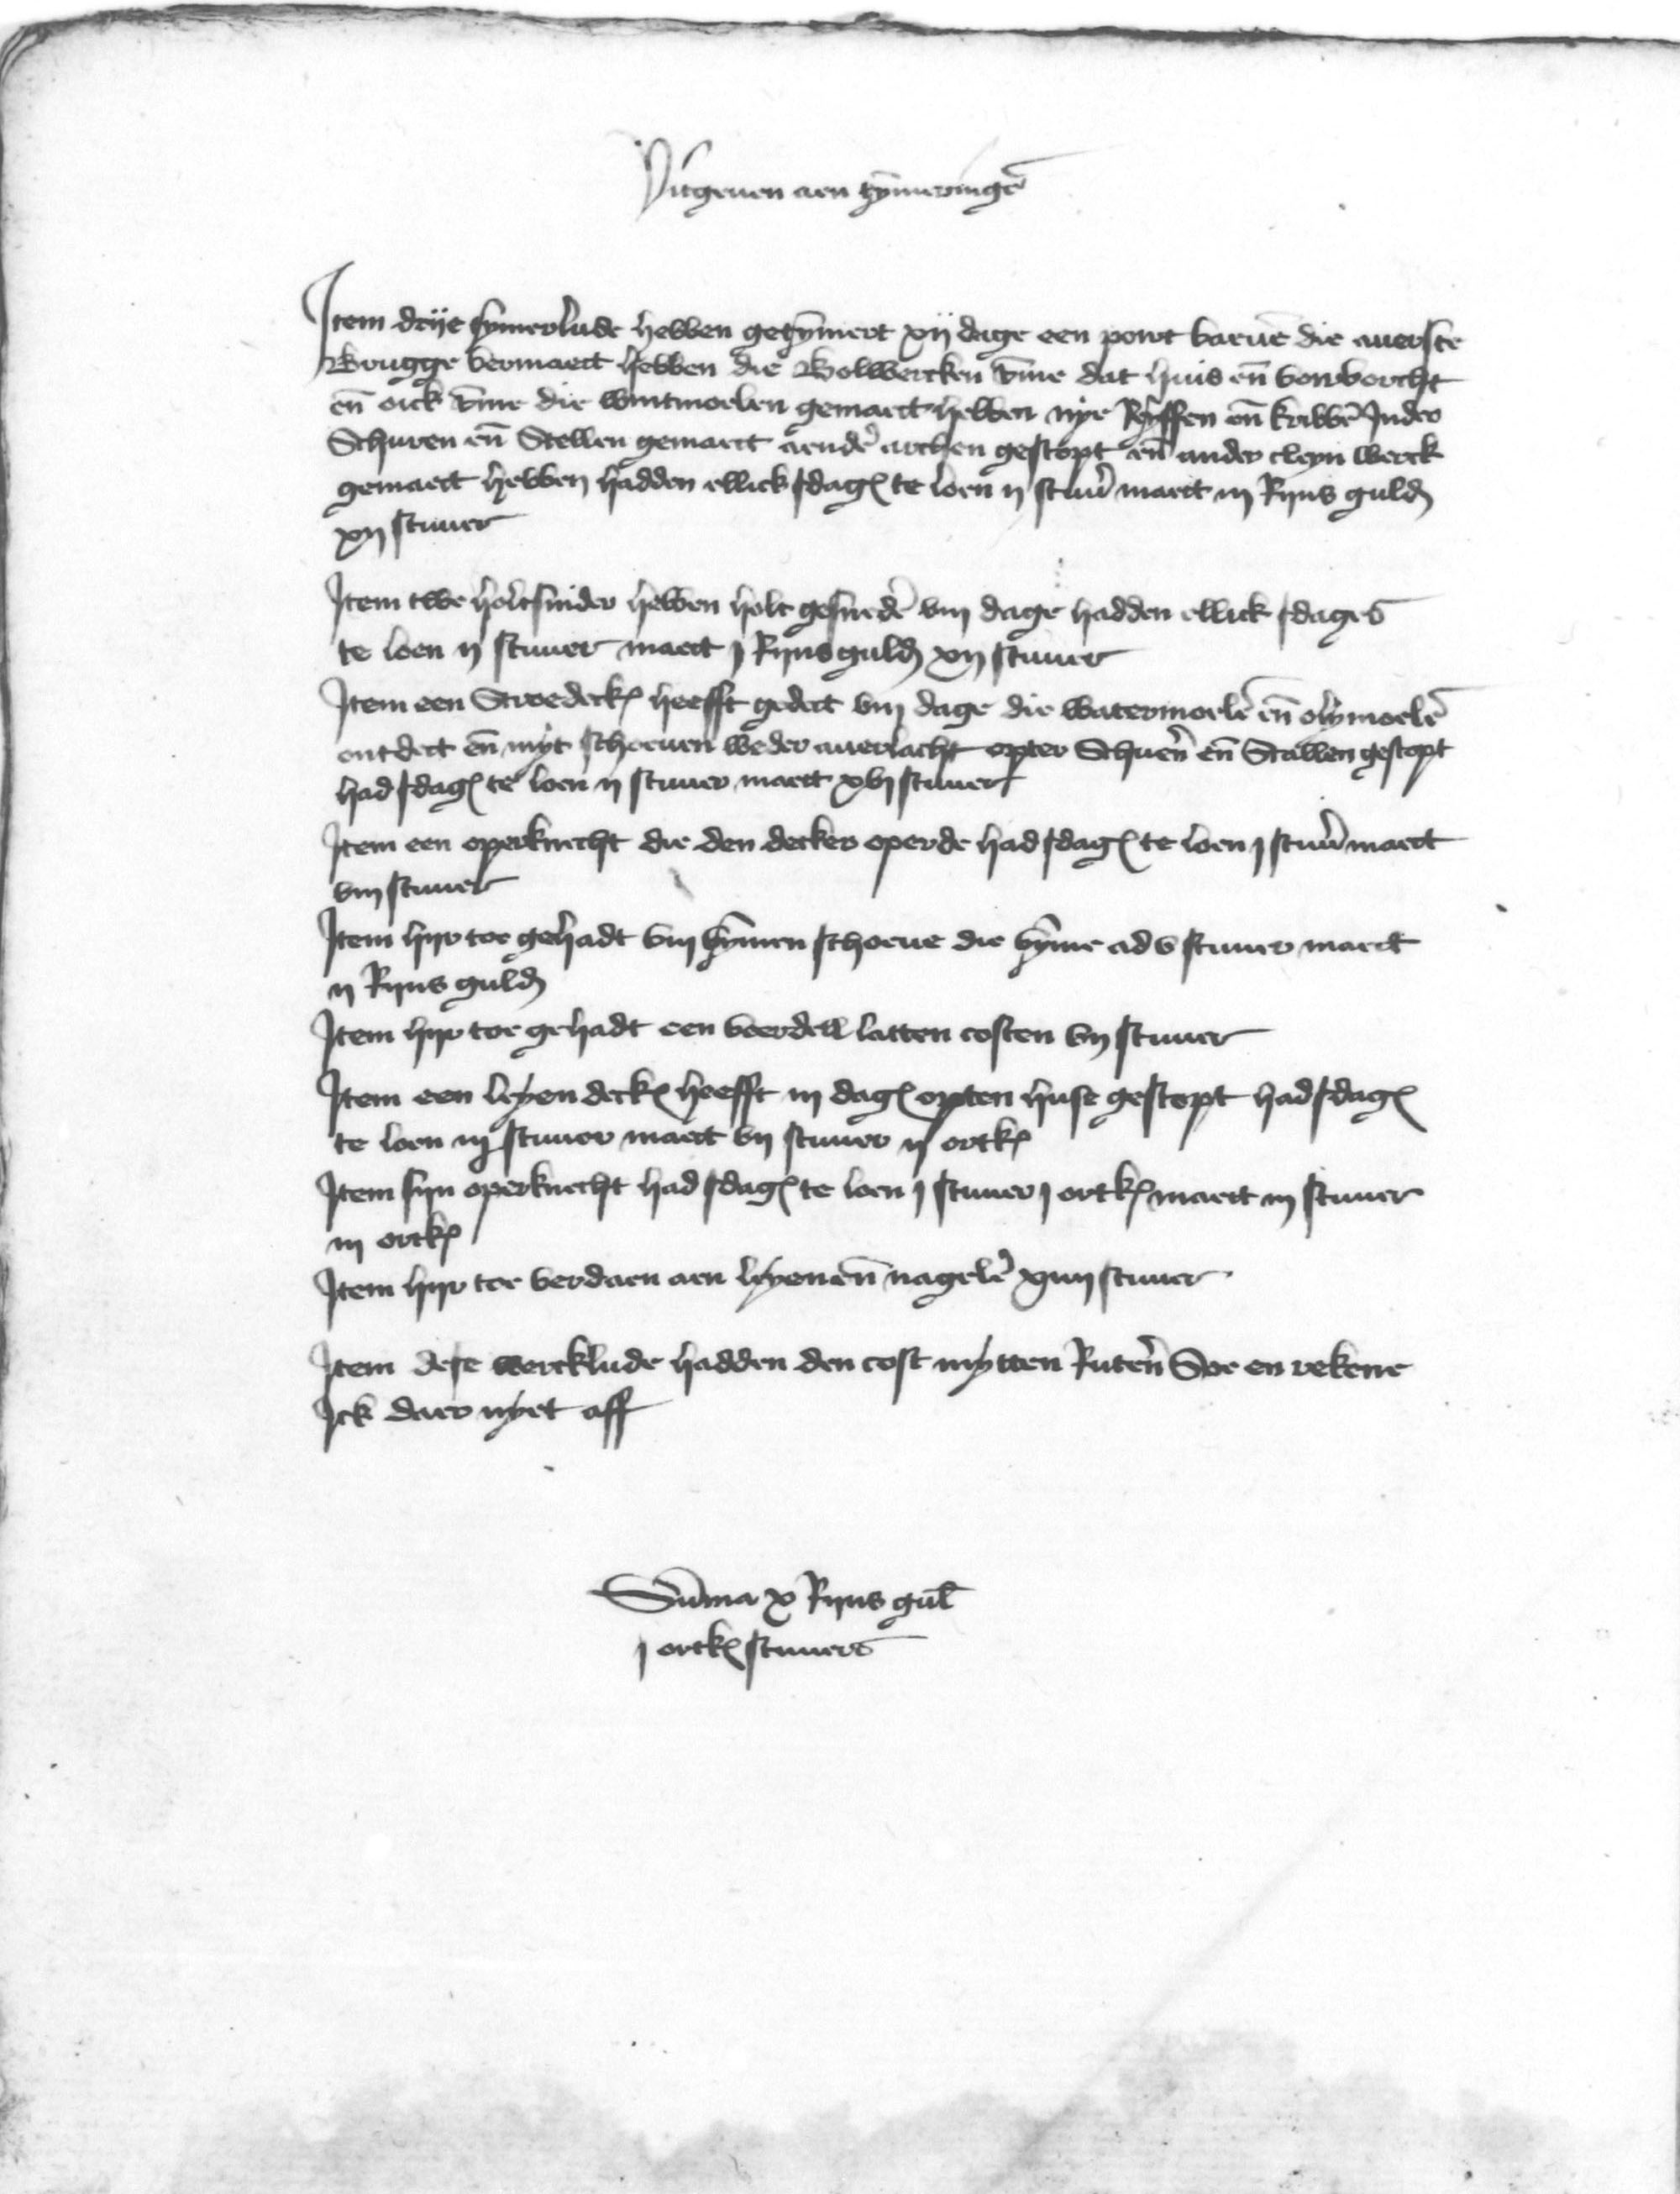 Vitgeuen aen tymeringē
Item drije tymerlude hebben getymert xij dage een port bauen die auerste
Brugge vermaect hebben die Bolwercken vme dat huis en̄ vorborcht
en̄ oick vme die wintmoelen gemaect hebben nye Reyffen en̄ kribbē Inder
Schuren en̄ Stellen gemaect aende archen gestopt en̄ ander cleyn werck
gemaect hebben hadden ellick sdag te loen ij stuu maect iij Rijns guld
xij stuuer
Item twe holtsnider hebben holt gesnedē viij dage hadden ellick sdages
te loen ij stuuer maect j Rijns guld xij stuuer
Item een Stroedeck heefft gedect viij dage die watermoelē en̄ olymoelē
ontdect en̄ myt schoeuen weder auerlacht opter Schuen en̄ Stallen gestopt
had sdag te loen ij stuuer maect xvj stuuer
Item een operknecht die den decker operde had sdag te loen j stuu maect
viij stuuer
Item hijr toe gehadt viij vymen schoeue die vyme ad v stuuer maect
ij Rijns guld
Item hijr toe gehadt een veerdell latten costen vij stuuer
Item een leyendeck heefft iij dag opten huse gestopt had sdag
te loen iij stuuer maect vij stuuer ij ortk
Item syn operknecht had sdag te loen j stuuer j ortk maect iij stuuer
iij ortk
Item hijr toe verdaen aen leyen en̄ nagelē xiiij stuuer
Item dese wercklude hadden den cost mytten Ruten Soe en rekene
Ick daer nyet aff
Sūma x Rijns gul
j ortk stuuers